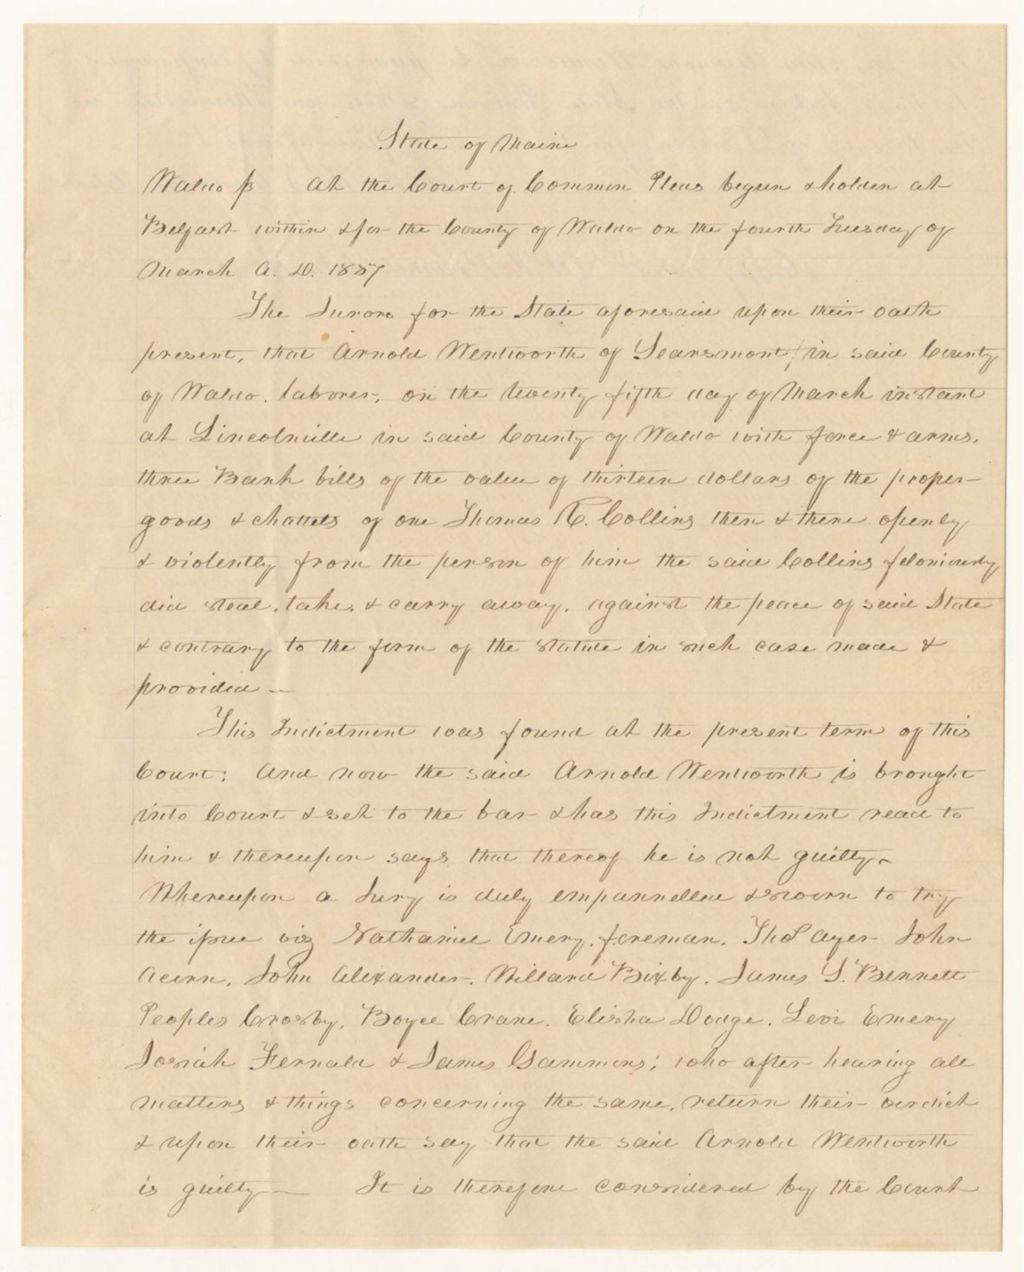 State of Maine
Waldo ss At the Court of Common Pleas begun & holden at
Belfast within & for the County of Waldo on the fourth Tuesday of
March A. D. 1837
The Jurors for the State aforesaid upon their oath
present, that Arnold Wentworth of Searsmont, in said County
of Waldo, laborer, on the twenty fifth day of March instant
at Lincolnville in said County of Waldo with force & arms,
three Bank bills of the value of thirteen dollars of the proper
goods & chattels of one Thomas R. Collins then & there openly
& violently from the person of him the said Collins feloniously
did steal, take, & carry away, against the peace of said State
& contrary to the form of the statute in such case made &
provided —
This Indictment was found at the present term of this
Court; And now the said Arnold Wentworth is brought
into Court & set to the bar & has this Indictment read to
him & thereupon says that thereof he is not guilty.
Whereupon a Jury is duly empannelled & sworn to try
the issue viz Nathaniel Emery, foreman, Thos Ayer John
Acorn, John Alexander, Willard Bixby, James S. Bennett
Peoples Crosby, Boyce Crane, Elisha Dodge, Levi Emery
Josiah Fernald & James Gammons; who after hearing all
matters & things concerning the same, return their verdict
& upon their oath say that the said Arnold Wentworth
is guilty — It is therefore considered by the Court